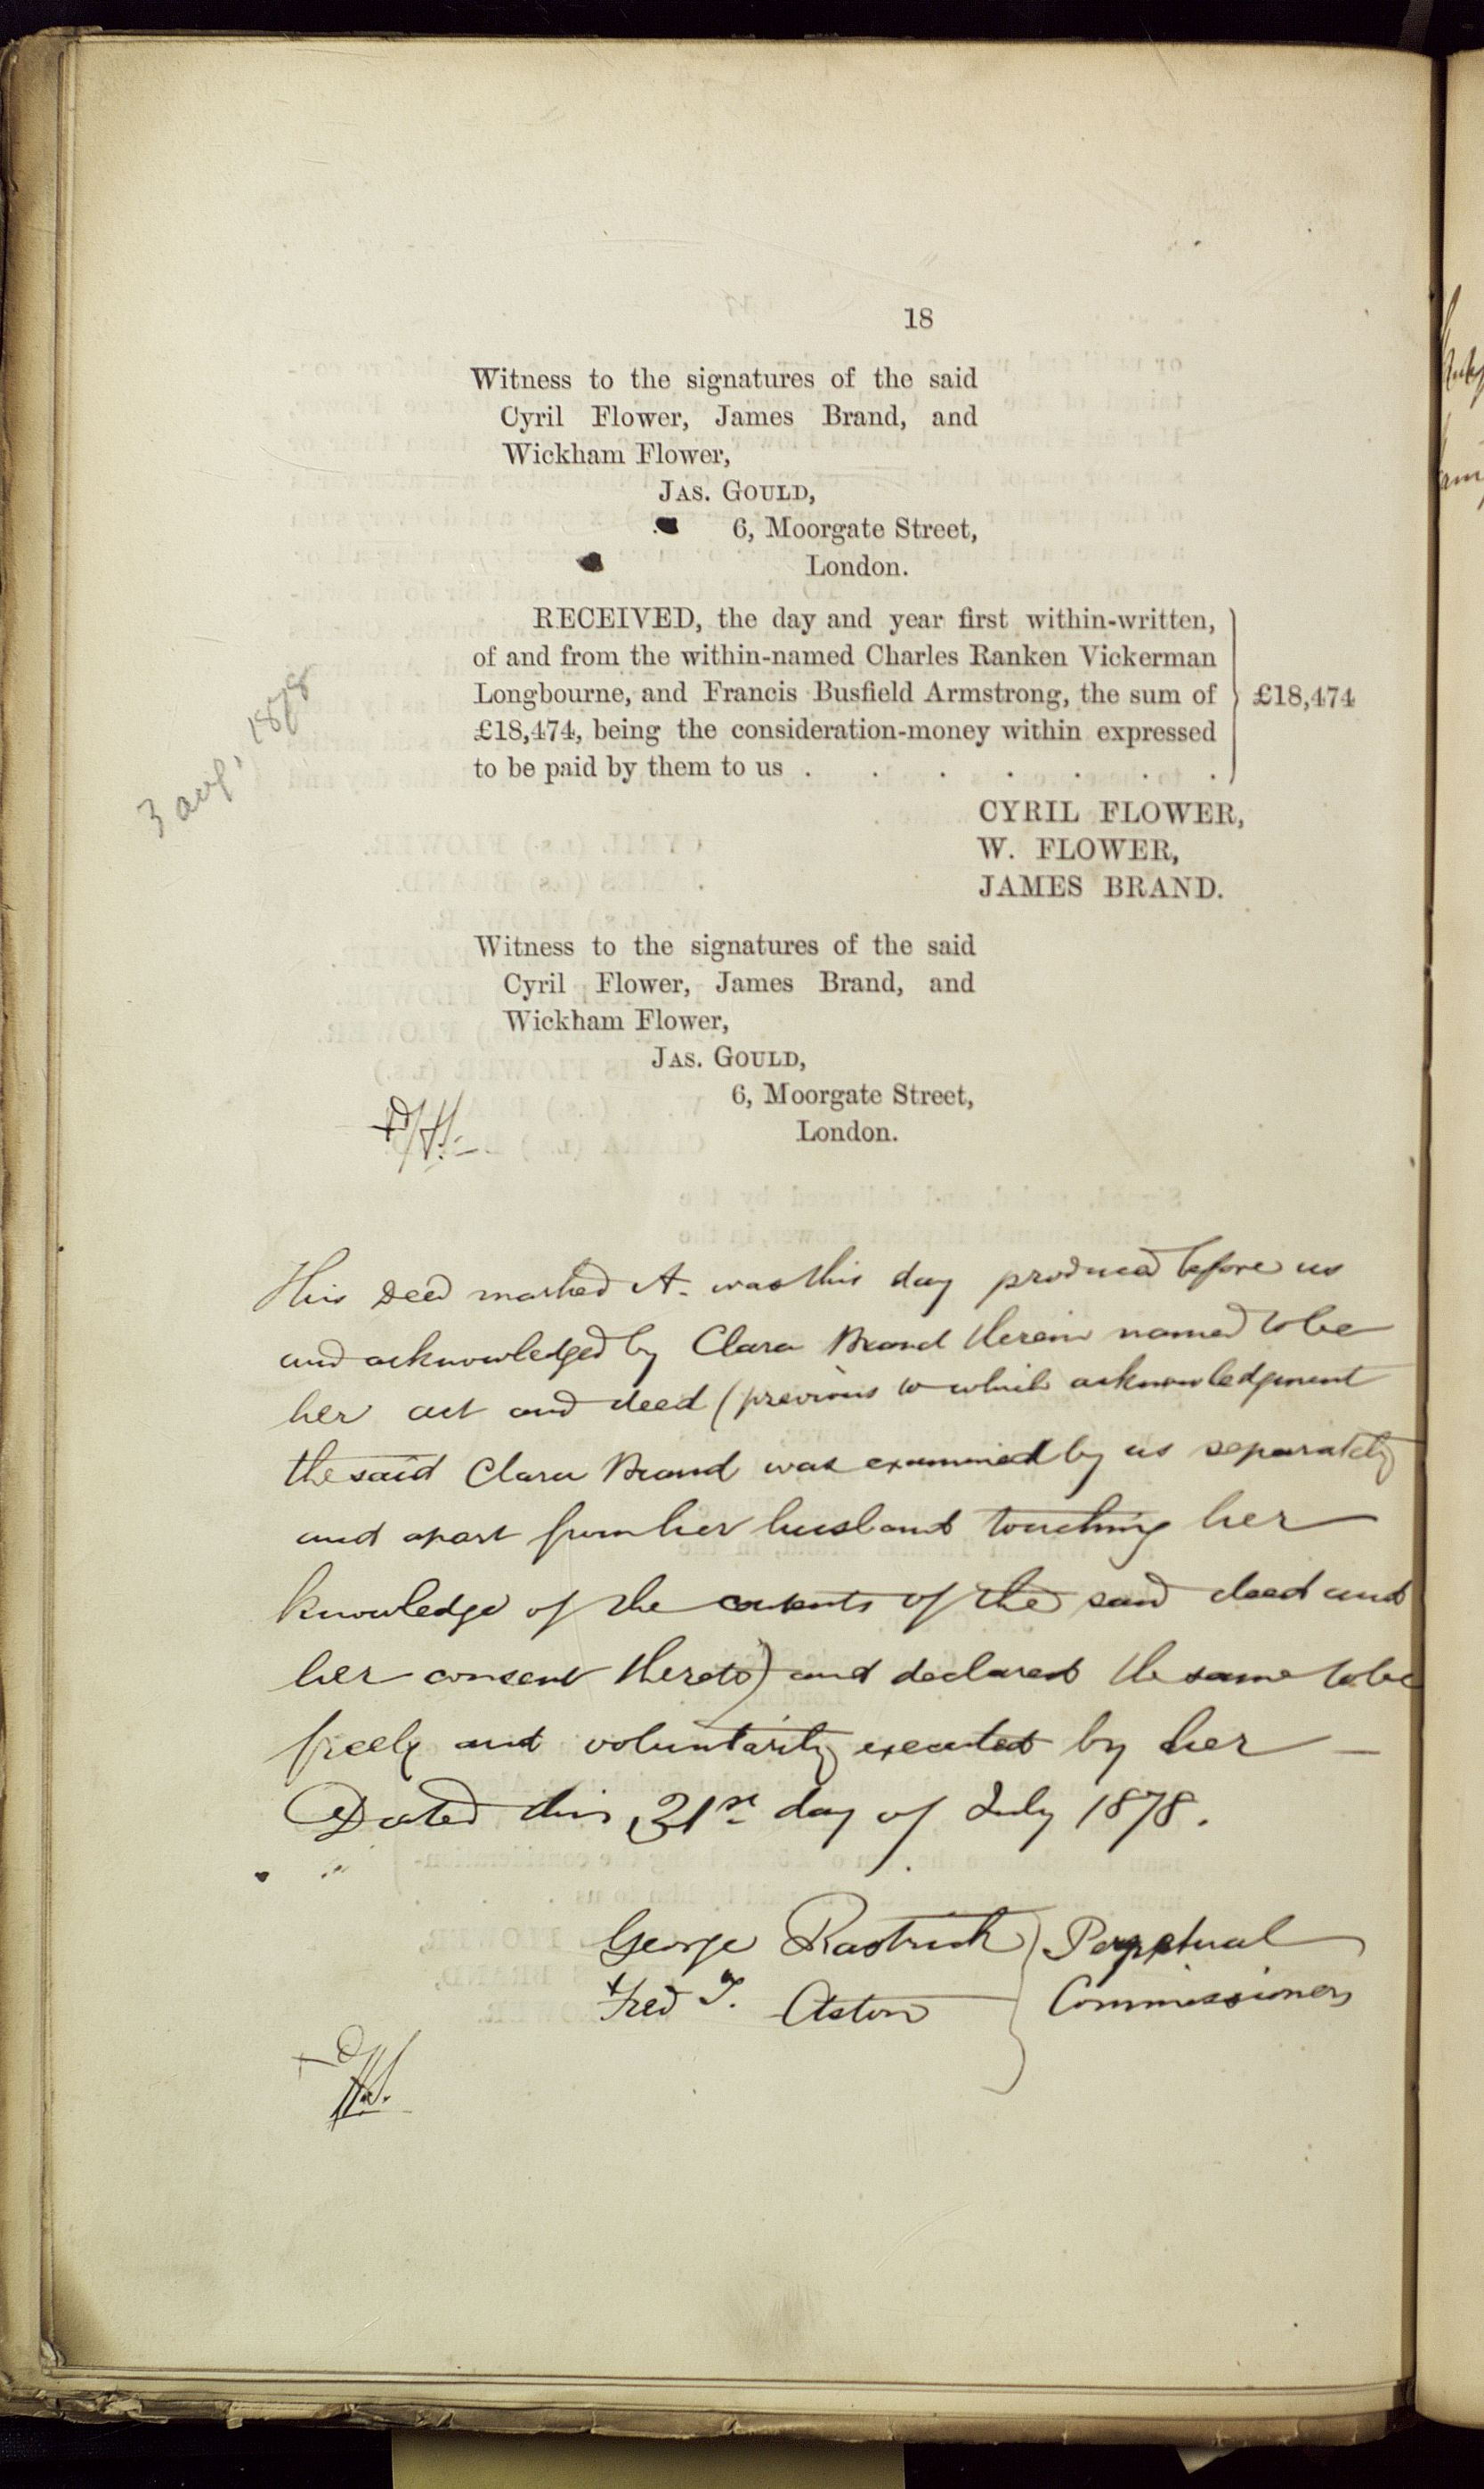 18
Witness to the signatures of the said
Cyril Flower, James Brand, and
Wickham Flower,
JAS. GOULD,
6, Moorgate Street,
London.
RECEIVED, the day and year first within-written,
of and from the within-named Charles Ranken Vickerman
Longbourne, and Francis Busfield Armstrong, the sum of
£18,474, being the consideration-money within expressed
to be paid by them to us . . . . . . .
£18,474
3 aug, 1878
CYRIL FLOWER,
W. FLOWER,
JAMES BRAND.
Witness to the signatures of the said
Cyril Flower, James Brand, and
Wickham Flower,
JAS. GOULD,
6, Moorgate Street,
London.
This Deed marked A. was this day produced before us
and acknowledged by Clara Brand therein named to be
her act and deed (previous to which acknowledgment
the said Clara Brand was examined by us separately
and apart from her husband touching her
knowledge of the contents of the said deed and
her consent thereto) and declared the same to be
freely and voluntarily executed by her —
Dated this 31st day of July 1878.
George Rastrick } Perpetual
Fred T. Aston } Commissioners